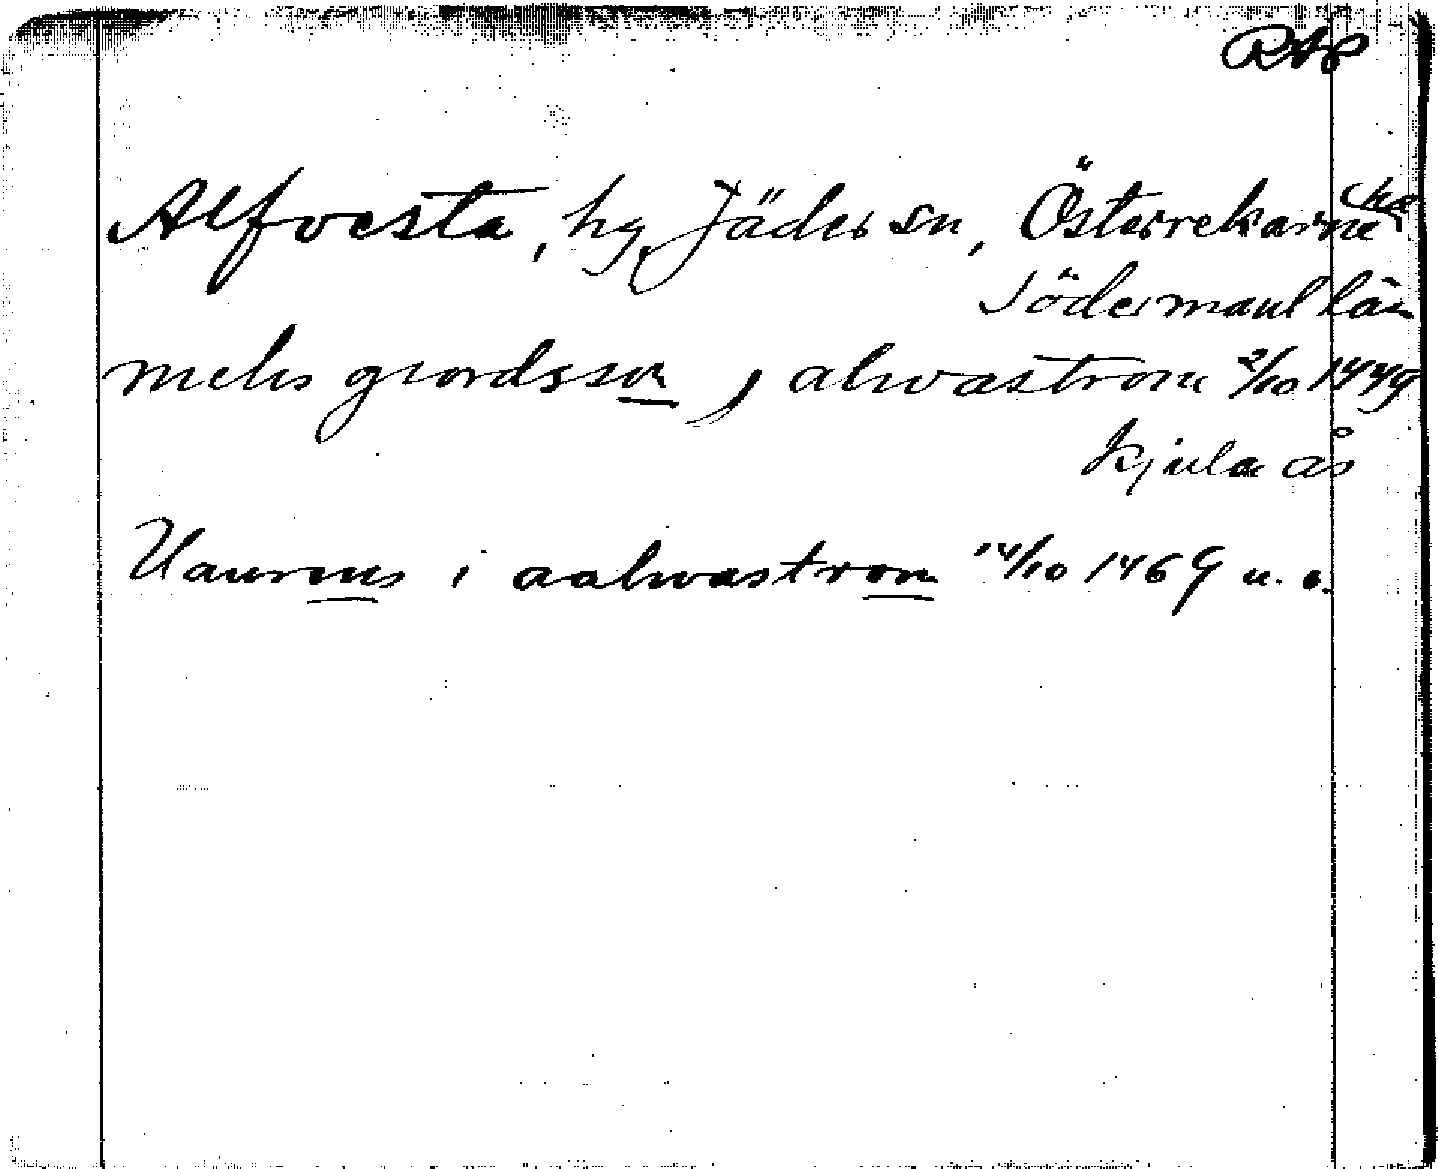 RAP
Alfvesta, hg, Jäders sn, Österrekarne hd
Södermanl län
mels giordsson j alwastrom 2/10 1449
Kjula ås
Haurens i aalwastrom 14/10 1469 u. o.